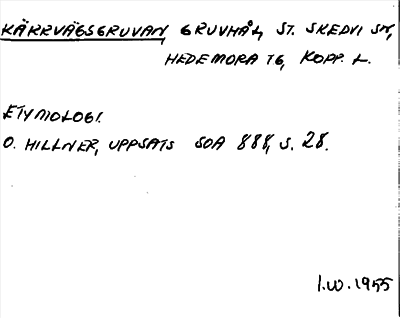 KÄRRVÄGSGRUVAN, GRUVHÅL, ST. SKEDVI SN,
HEDEMORA TG, KOPP. L.
ETYMOLOGI.
O. HILLNER, UPPSATS SOA 888, S. 28.
I.W. 1955